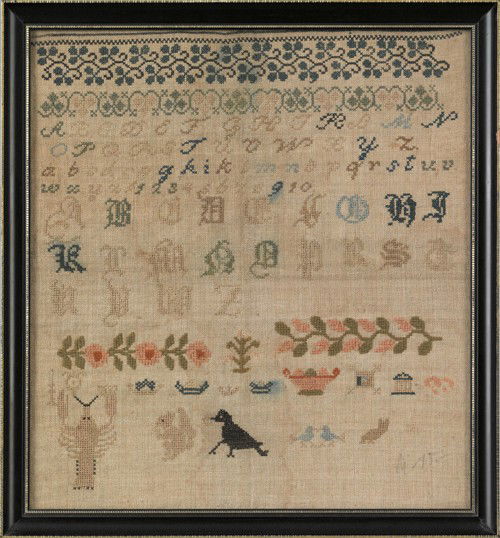 A B C D E F G H I K L M N
O P Q R S T U V W X Y Z
a b c d e f g h i k l m n o p q r s t u v
w x y z 1 2 3 4 5 6 7 8 9 10
A B C D E F G H I
K L M N O P R S T
U V W Z